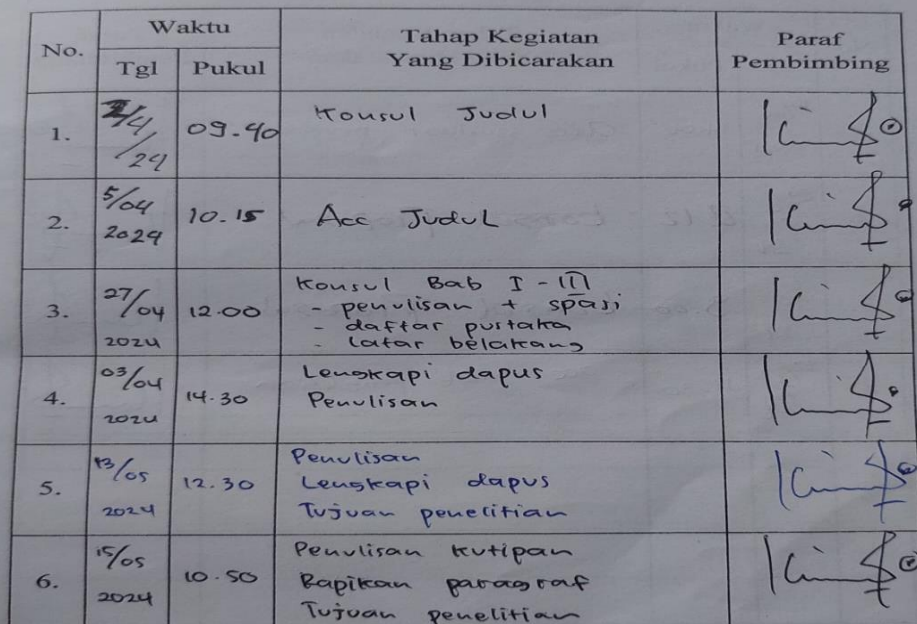 No.
Waktu
Tgl
Pukul
Tahap Kegiatan
Yang Dibicarakan
Paraf
Pembimbing
1.
2/4/24
09.40
Konsul Judul
2.
5/04
2024
10.15
Acc Judul
3.
27/04
2024
12.00
Konsul Bab I - III
- penulisan + spasi
- daftar pustaka
- latar belakang
4.
03/04
2024
14.30
Lengkapi dapus
Penulisan
5.
13/05
2024
12.30
Penulisan
Lengkapi dapus
Tujuan penelitian
6.
15/05
2024
10.50
Penulisan kutipan
Rapikan paragraf
Tujuan penelitian